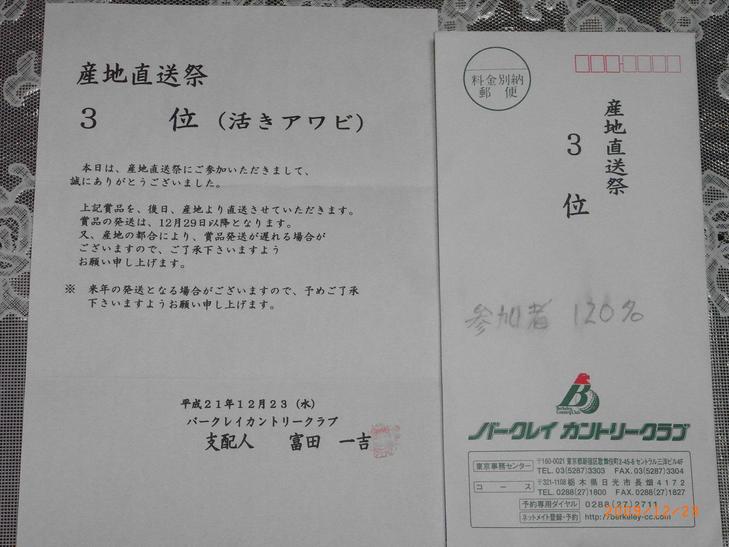 産地直送祭
３　　位（活きアワビ）
本日は、産地直送祭にご参加いただきまして、
誠にありがとうございました。
上記賞品を、後日、産地より直送させていただきます。
賞品の発送は、12月29日以降となります。
又、産地の都合により、賞品発送が遅れる場合が
ございますので、ご了承下さいますよう
お願い申し上げます。
※　来年の発送となる場合がございますので、予めご了承
下さいますようお願い申し上げます。
平成２１年１２月２３（水）
バークレイカントリークラブ
支配人　富田　一吉
料金別納
郵便
産地直送祭
３　位
参加者 120名
B
Berkeley
Country Club
バークレイ カントリークラブ
東京事務センター
〒160-0021 東京都新宿区歌舞伎町2-45-8 セントラル三洋ビル4F
TEL. 03(5287)3303　FAX. 03(5287)3304
コース
〒321-1108 栃木県日光市長畑４１７２
TEL. 0288(27)1800　FAX. 0288(27)1827
予約専用ダイヤル　0288(27)2711
ネットメイト登録・予約　http://berkeley-cc.com
2009/12/23